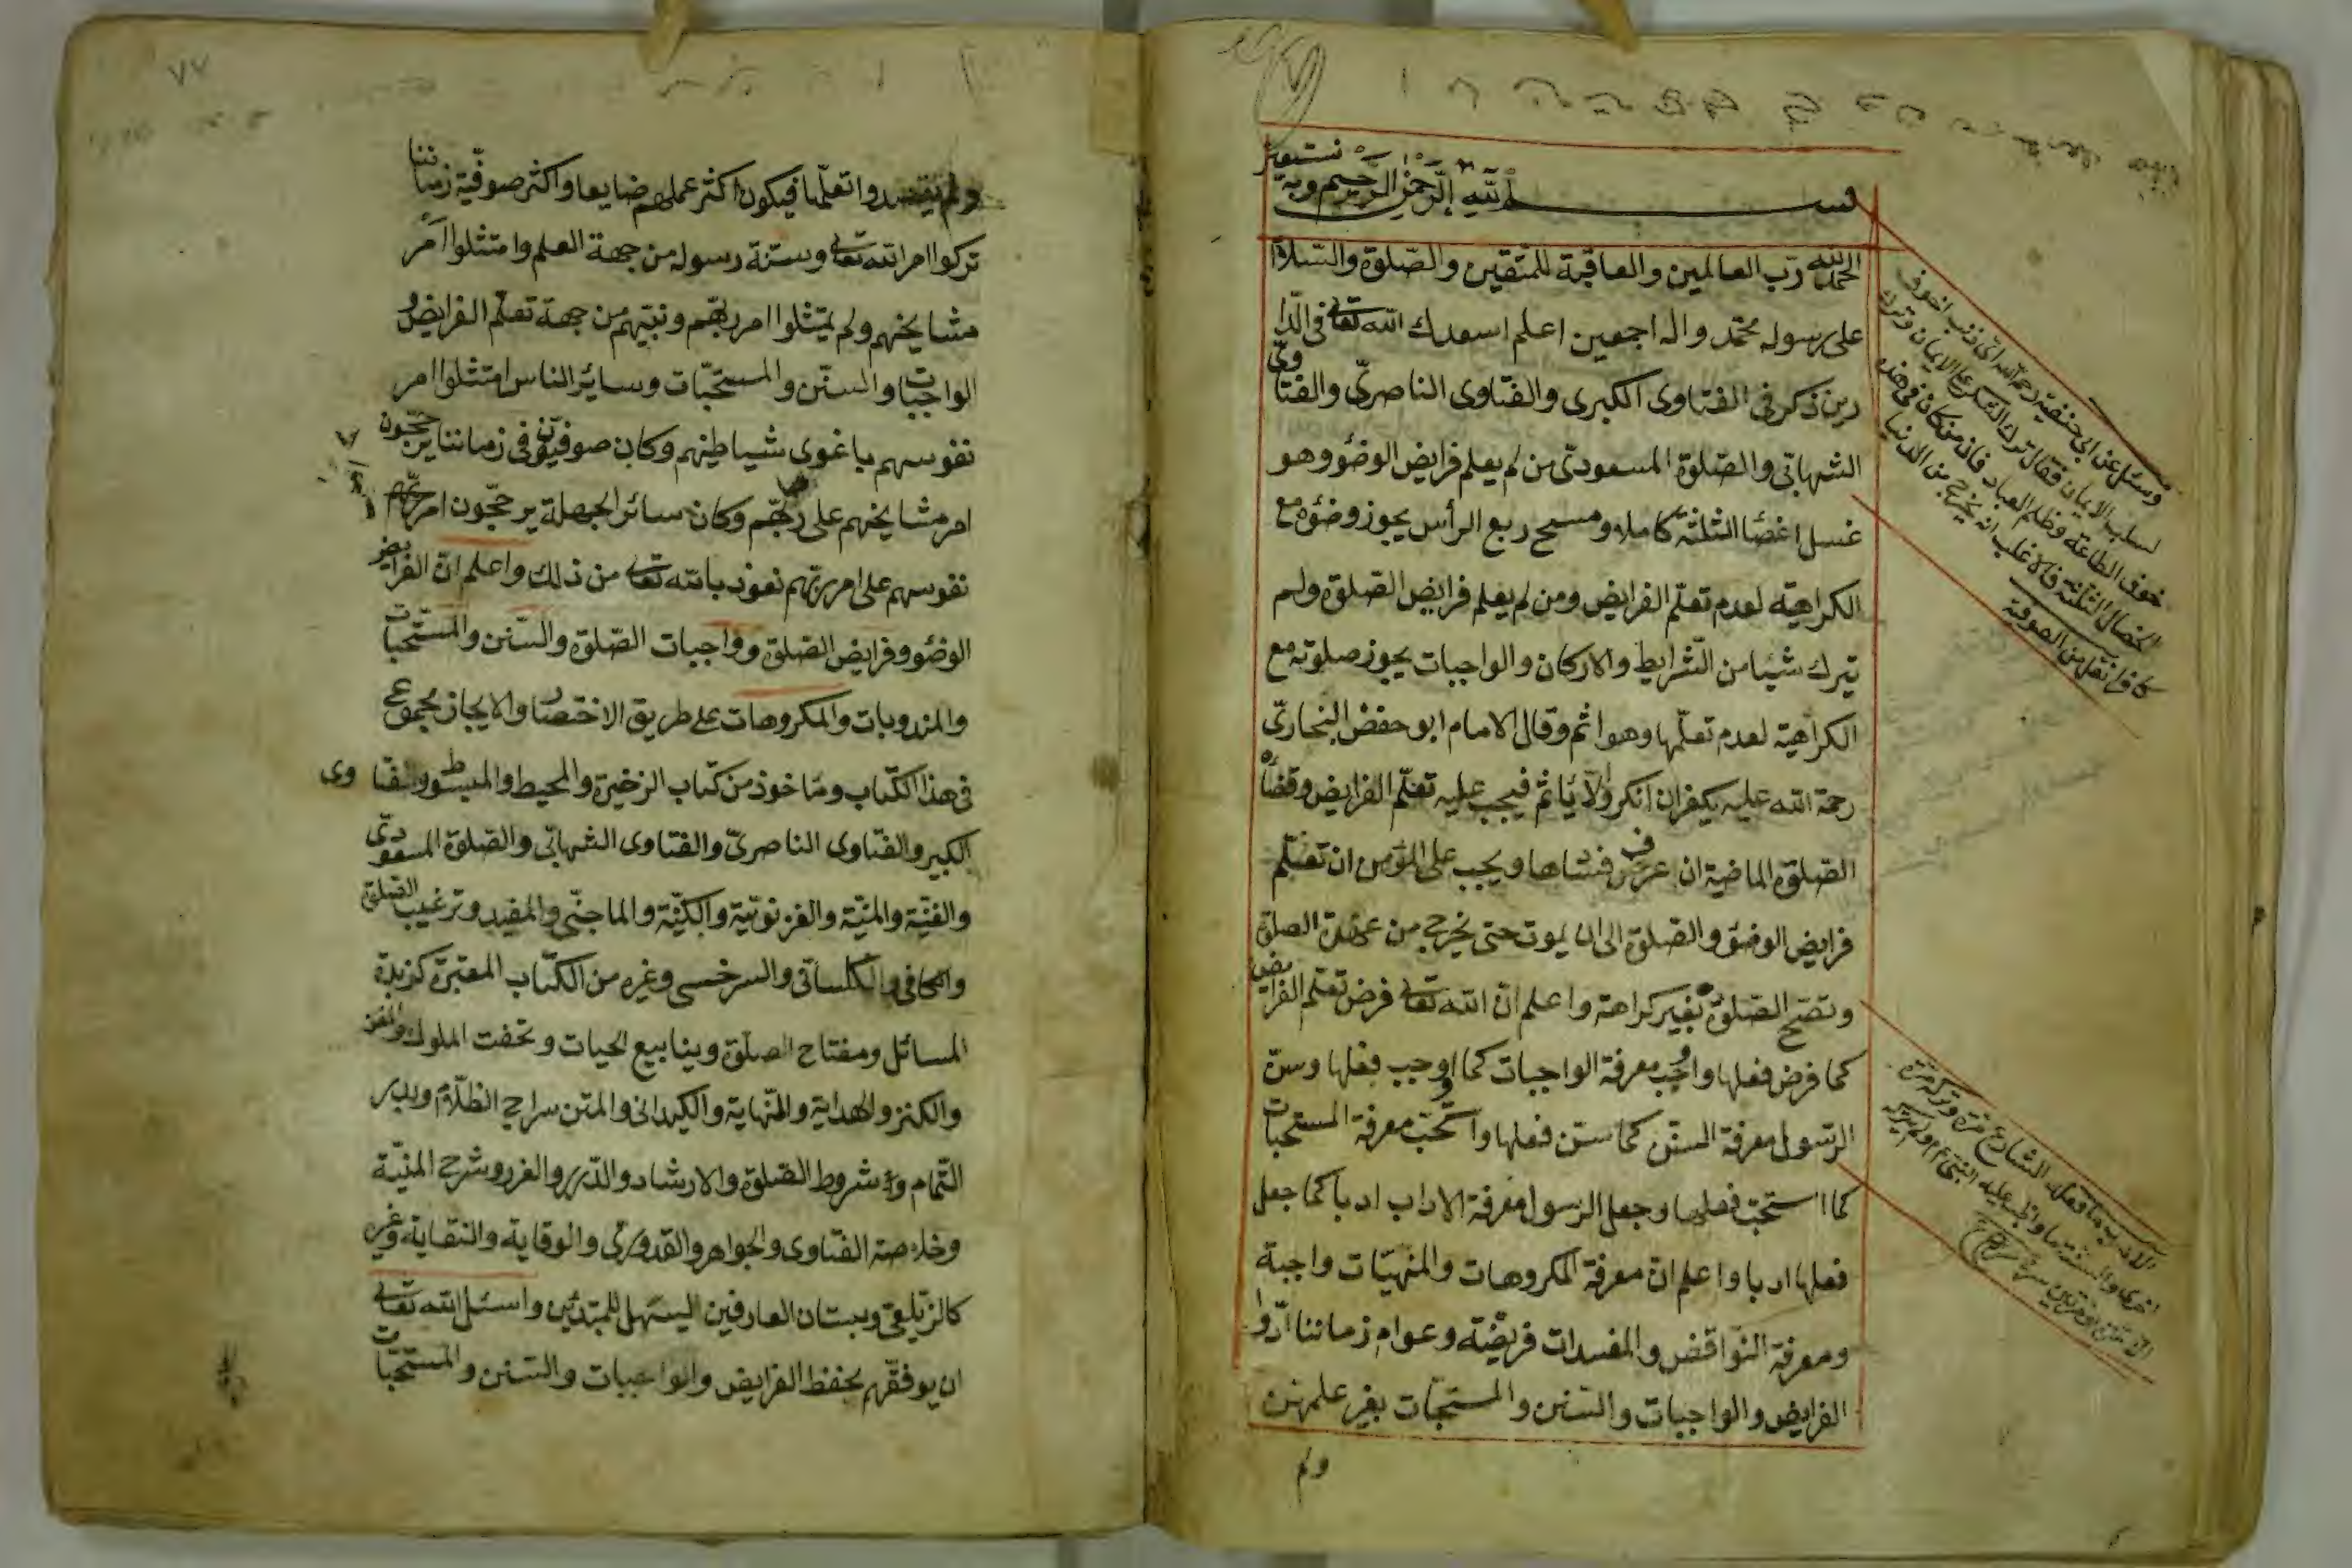 بسم الله الرحمن الرحيم وبه نستعين
الحمد لله رب العالمين والعاقبة للمتقين والصلوة والسلام
على رسوله محمد واله اجمعين اعلم اسعدك الله تعالى في الدا
رين ذكر في الفتاوى الكبرى والفتاوى الناصرى والفتاوى
الشهابى والصلوة المسعودى من لم يعلم فرايض الوضؤ وهو
غسل اعضا الثلثة كاملا ومسح ربع الرأس يجوز وضؤه مع
الكراهية لعدم تعلم الفرايض ومن لم يعلم فرايض الصلوة ولم
يترك شيئا من الشرايط والاركان والواجبات يجوز صلوته مع
الكراهية لعدم تعلمها وهو اثم وقال الامام ابو حفض البخارى
رحمة الله عليه يكفر ان انكر والا يأثم فيجب عليه تعلم الفرايض وقضاء
الصلوة الماضية ان عرف فنساها ويجب على المؤمن ان تعلم
فرايض الوضؤ والصلوة الى ان يموت حتى يخرج من عهدة الصلوة
وتصح الصلوة بغير كراهة واعلم ان الله تعالى فرض تعلم الفرايض
كما فرض فعلها واوجب معرفة الواجبات كما اوجب فعلها وسن
الرسول معرفة السنن كما سنن فعلها واستحب معرفة المستحبات
كما استحب فعلها وجعل الرسول معرفة الاداب ادبا كما جعل
فعلها ادبا واعلم ان معرفة المكروهات والمنهيات واجبة
ومعرفة النواقض والمفسدات فريضته وعوام زماننا ادوا
الفرايض والواجبات والسنن والمستحبات بغير علمهن
ولم
وسئل عن ابى حنفية رحمه الله اى ذنب اخوف
لسلب الايمان فقال ترك الشكر على الايمان وترك
خوف الطاعة وظلم العباد فان من كان فى هذه
الخصال الثلثة فالاغلب انه يخرج من الدنيا
كافرا نقل من الصوفية
الادب ما فعله الشارع مرة وتركه مرة
اخرى والسنة ما واظب عليه النبى ءم ولم يتركه
الا مرة او مرتين
٧٧
ولم يقصدوا تعلمها فيكون اكثر عملهم ضايعا واكثر صوفية زماننا
تركوا امر الله تعالى وسنة رسوله من جهة العلم وامتثلوا امر
مشايخهم ولم يمتثلوا امر ربهم ونبيهم من جهة تعلم الفرايض و
الواجبات والسنن والمستحبات وسائر الناس امتثلوا امر
نفوسهم باغوى شياطينهم وكان صوفيون في زماننا يرجحون
امر مشايخهم على ربهم وكان سائر الجهلة يرجحون امر
نفوسهم على امر ربهم نعوذ بالله تعالى من ذلك واعلم ان الفرايض
الوضؤ وفرايض الصلوة وواجبات الصلوة والسنن والمستحبات
والمندوبات والمكروهات على طريق الاختصار والايجاز مجموع
في هذا الكتاب ومأخوذ من كتاب الزخيرة والمحيط والمبسوط والفتاوى
الكبير والفتاوى الناصرى والفتاوى الشهابى والصلوة المسعودى
والقنية والمنية والغزنوية والماجنى والمفيد وترغيب الصلوة
والكافى والسرخسى وغيره من الكتاب المعتبرة كزبدة
المسائل ومفتاح الصلوة وينابيع الحيات وتحفت الملوك
والكنز والهداية والنهاية والكيدانى والمتن سراج الظلام وبدر
التمام وشروط الصلوة والارشاد والدرر والغرر وشرح المنية
وخلاصة الفتاوى والجواهر والقدورى والوقاية والنقاية وغيره
كالزيلعى وبستان العارفين ليسهل للمبتدئين واسئل الله تعالى
ان يوفقهم بحفظ الفرايض والواجبات والسنن والمستحبات